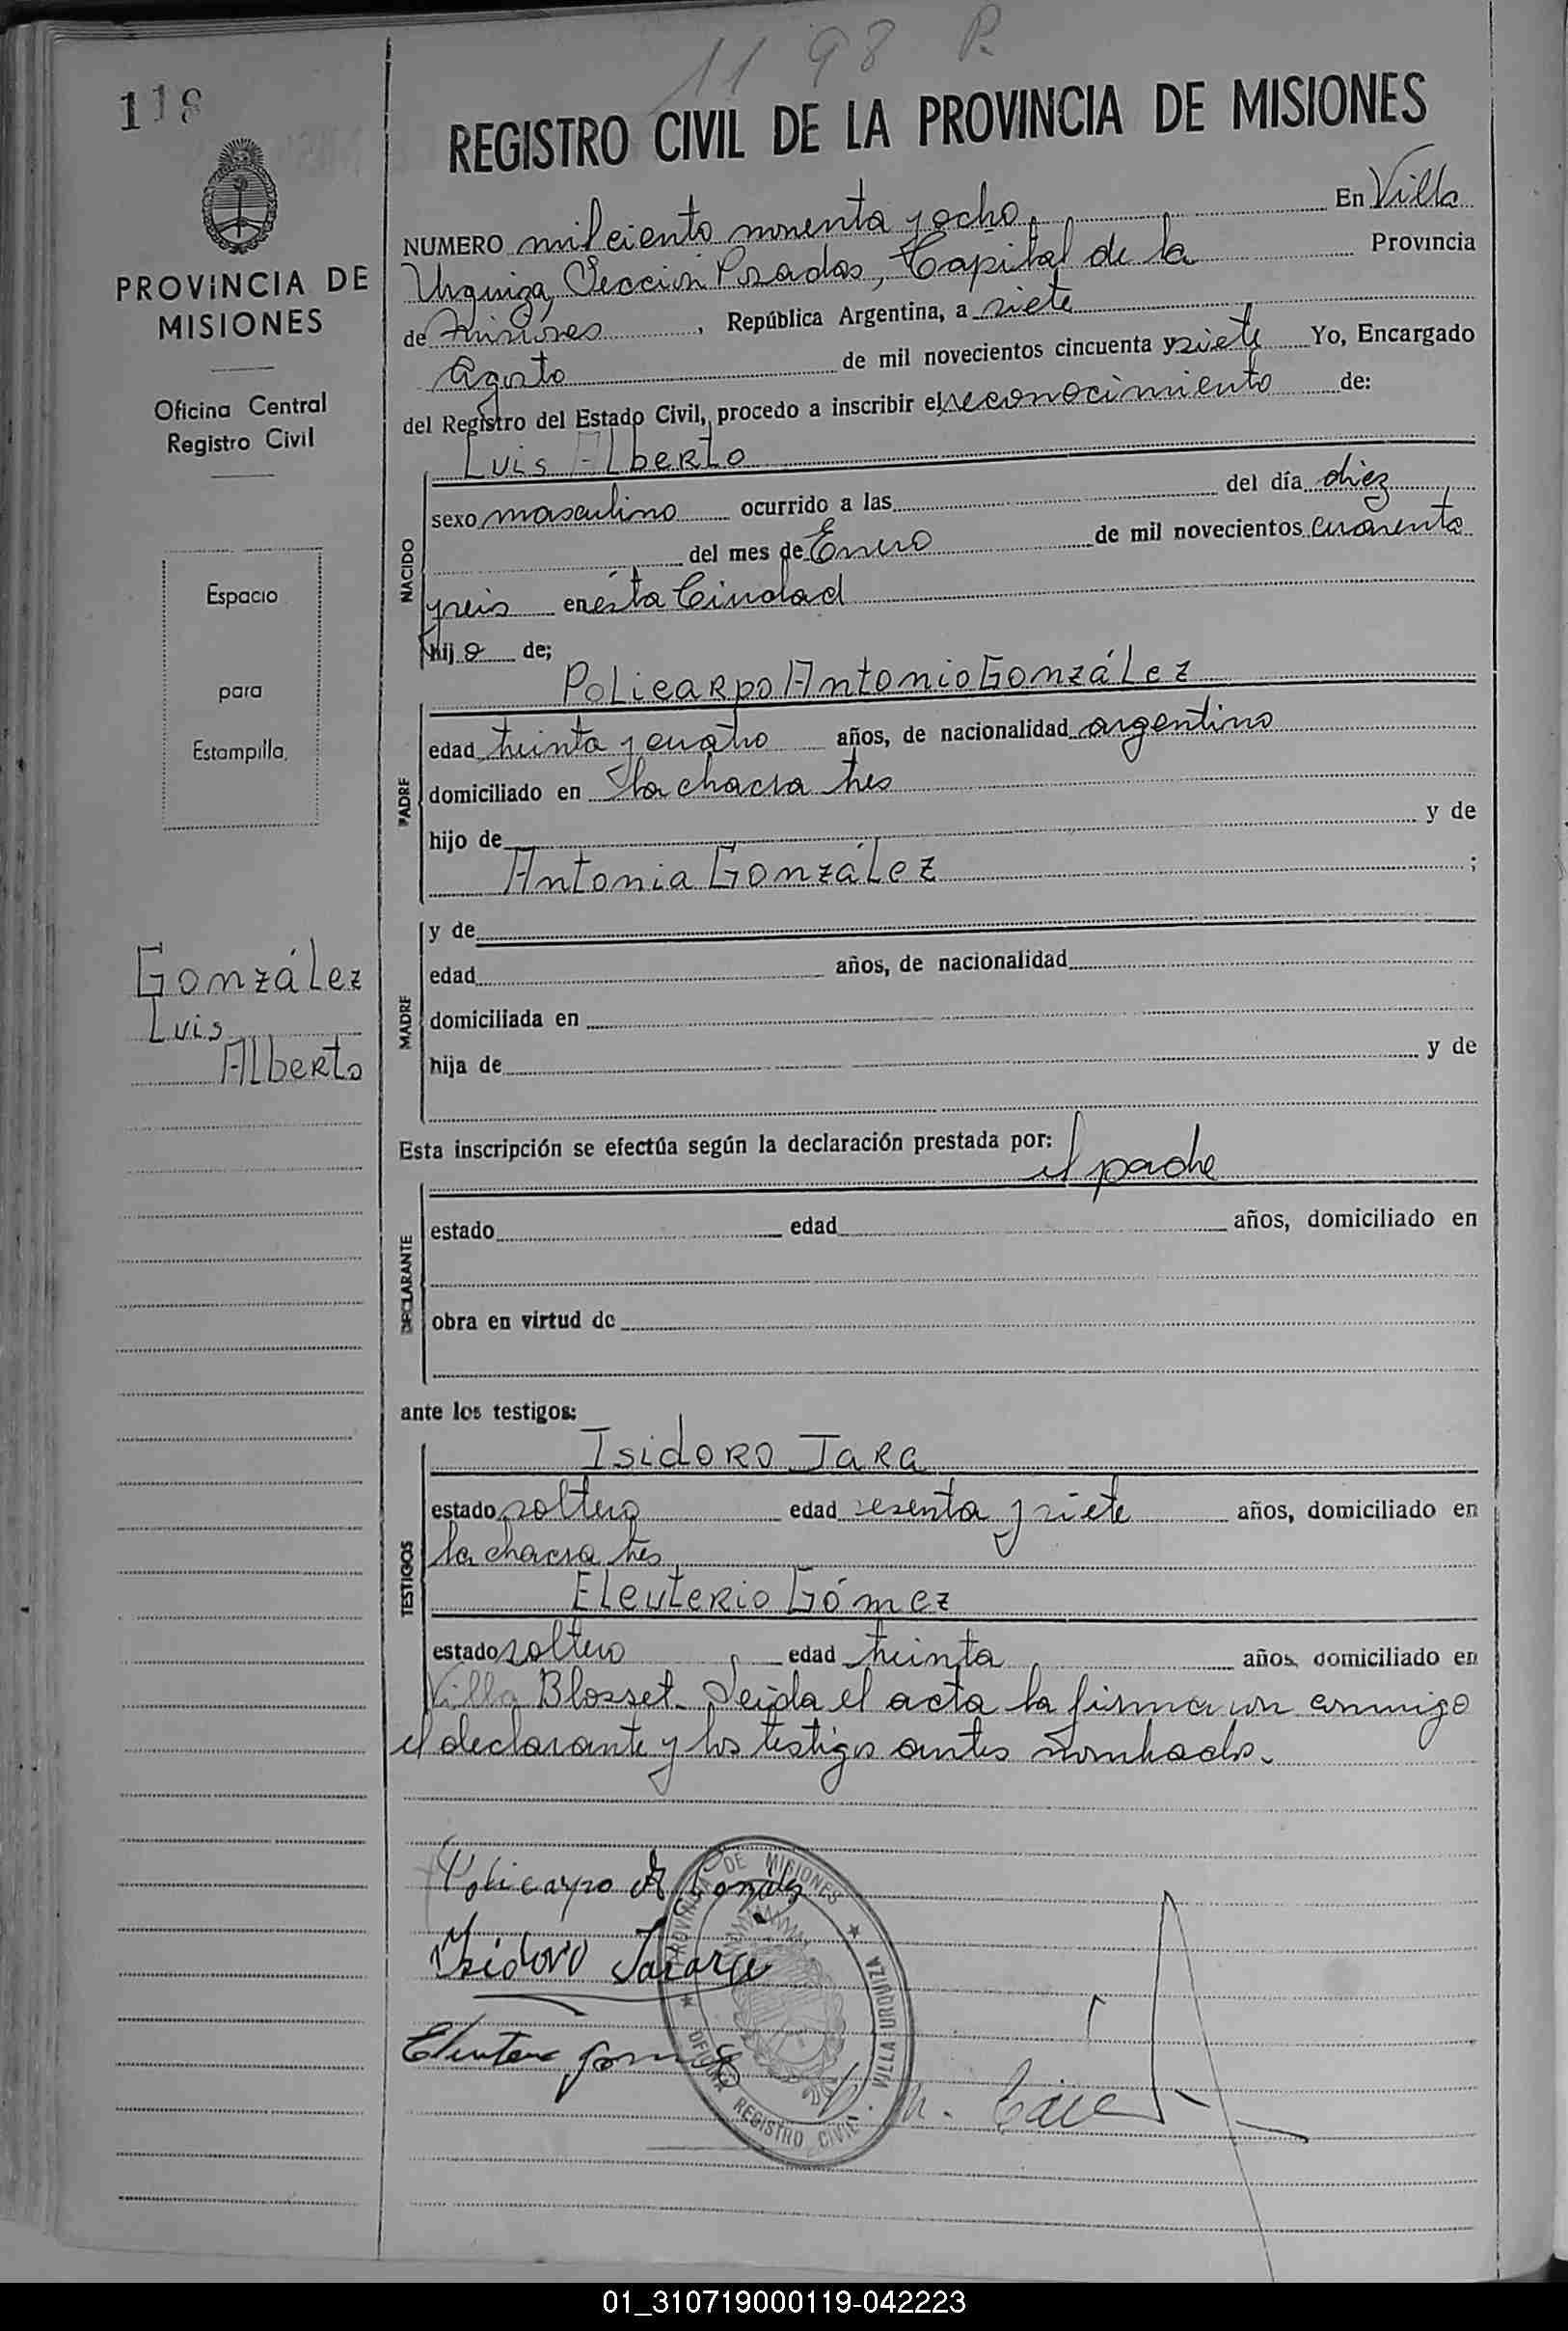 11 98 P.
118
REGISTRO CIVIL DE LA PROVINCIA DE MISIONES
PROVINCIA DE
MISIONES
Oficina Central
Registro Civil
Espacio
para
Estampilla
González
Luis
Alberto
NUMERO mil ciento noventa y ocho En Villa
Urquiza, Sección Posadas, Capital de la Provincia
de Misiones, República Argentina, a siete
Agosto de mil novecientos cincuenta y siete Yo, Encargado
del Registro del Estado Civil, procedo a inscribir el reconocimiento de:
Luis Alberto
NACIDO
sexo masculino ocurrido a las del día diez
del mes de Enero de mil novecientos cuarenta
y seis en ésta Ciudad
hijo de;
Policarpo Antonio González
PADRE
edad treinta y cuatro años, de nacionalidad argentino
domiciliado en la chacra tres
hijo de y de
Antonia González ;
MADRE
y de
edad años, de nacionalidad
domiciliada en
hija de y de
Esta inscripción se efectúa según la declaración prestada por:
el padre
DECLARANTE
estado edad años, domiciliado en
obra en virtud de
ante los testigos:
TESTIGOS
Isidoro Jara
estado soltero edad sesenta y siete años, domiciliado en
la chacra tres
Eleuterio Gómez
estado soltero edad treinta años, domiciliado en
Villa Blosset. Leida el acta la firma con conmigo
el declarante y los testigos antes nombrados.
Policarpo A González
Isidoro
PROVINCIA DE MISIONES
VILLA URQUIZA
OFICINA REGISTRO CIVIL
01_310719000119-042223